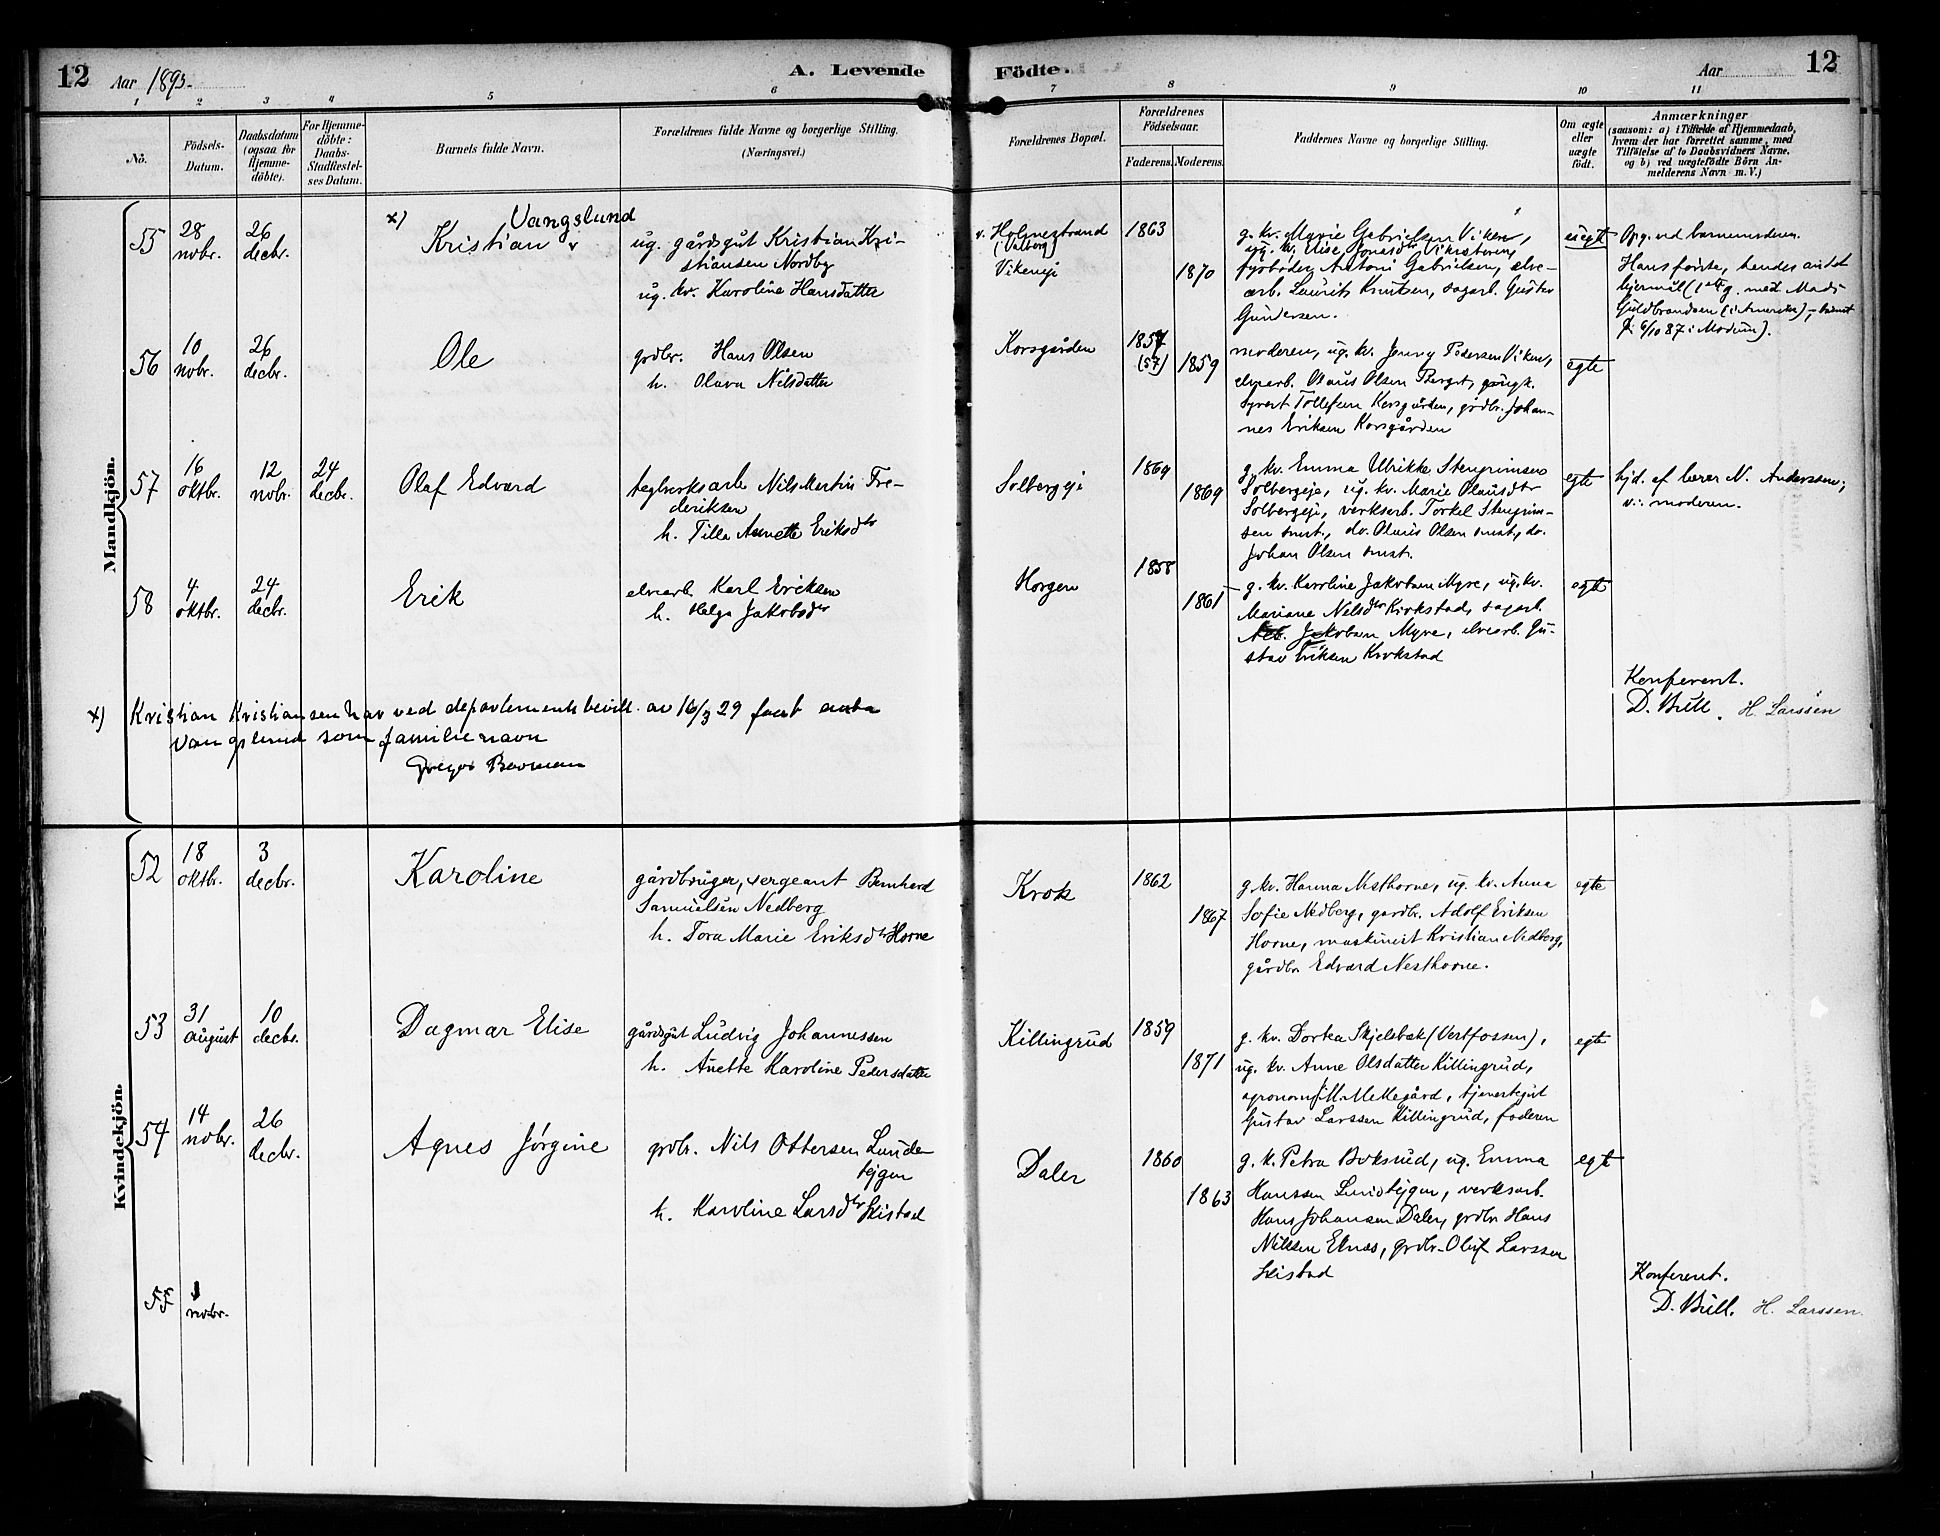 12 Aar 1893. A. Levende Födte. Aar 12
1 2 3 4 5 6 7 8 9 10 11
No.
Födsels-
Datum.
Daabsdatum
(ogsaa for
Hjemme-
döbte).
For Hjemme-
döbte:
Daabs-
Stadfæstel-
ses Datum.
Barnets fulde Navn.
Forældrenes fulde Navne og borgerlige Stilling.
(Næringsvei.)
Forældrenes Bopæl.
Forældrenes
Födselsaar.
Faderens. Moderens.
Faddernes Navne og borgerlige Stilling.
Om ægte
eller
uægte
födt.
Anmærkninger
(saasom: a) i Tilfælde af Hjemmedaab,
hvem der har forrettet samme, med
Tilföielse af to Daabsvidners Navne,
og b) ved uægtefödte Börn An-
melderens Navn m. V.)
Mandkjön.
55
28
novbr.
26
decbr.
x) Vangslund
Kristian
ug. gårdsgut Kristian Kri-
stiansen Nordby
ug. kv. Karoline Hansdatter
v. Holmestrand
(Valberg)
Vikeneje
1863
1870
g. kv. Marie Gabrielsen Viken,
ug. kv. Elise Jonasdtr Vikerstveen,
fyrbøder Antoni Gabrielsen, elve-
arb. Laurits Knutsen, sagarb. Gustav
Gundersen.
uegt
Opg. ved barnemoderen.
Hans første, hendes andet
leiermål (1st g. med Mads
Guldbrandsen (i Amerika), – barnet
f. 6/10 87 i Modum).
56
10
novbr.
26
decbr.
Ole
grdbr. Hans Olsen
h. Olava Nilsdatter
Korsgården
1857
(57)
1859
moderen, ug. kv. Jenny Pedersen Viken,
elvearb. Olaus Olsen Berget, gårdg.
Syvert Tollefsen Korsgården, grdbr. Johan-
nes Eriksen Korsgården
egte
57
16
oktbr.
12
novbr.
24
decbr.
Olaf Edvard
teglverksarb Nils Martin Fre-
deriksen
h. Tilla Annette Eriksdtr
Solbergeje
1869
1869
g. kv. Emma Ulrikke Stengrimsen
Solbergeje, ug. kv. Marie Olausdtr
Solbergeje, verksarb. Torkel Stengrim-
sen smst., do. Olaus Olsen smst., do.
Johan Olsen smst.
egte
hjd. af lærer N. Anderssen;
v.: moderen.
58
4
oktbr.
24
decbr.
Erik
elvearb Karl Eriksen
h. Helga Jakobsdtr
Horgen
1858
1861
g. kv. Karoline Jakobsen Myre, ug. kv.
Mariane Nilsdtr Krokstad, sagarb.
Jakobsen Myre, elvearb. Gu-
stav Eriksen Krokstad
egte
Konfereret.
D. Bull. H. Larssen
x) Kristian Kristiansen har ved departementsbevill. av 16/3 29 faat anta
Vangslund som familienavn
Kvindekjön.
52
18
oktbr.
3
decbr.
Karoline
gårdbruger, sergeant Bernhard
Samuelsen Nedberg
h. Tora Marie Eriksdtr Horne
Krok
1862
1867
g. kv. Hanna Nesthorne, ug. kv. Anna
Sofie Nedberg, gardbr. Adolf Eriksen
Horne, maskinist Kristian Nedberg,
gårdbr Edvard Nesthorne.
egte
53
31
august
10
decbr.
Dagmar Elise
gårdsgut Ludvig Johannessen
h. Anette Karoline Pedersdatter
Killingrud
1859
1871
g. kv. Dortea Skjelsbæk (Vestfossen),
ug. kv. Anne Olsdatter Killingrud,
agronom J. M. Mellegård, tjenestegut
Gustav Larssen Killingrud, faderen
egte
54
14
novbr.
26
decbr.
Agnes Jørgine
grdbr. Nils Ottersen Lunde-
bygen
h. Karoline Larsdtr Skistad
Daler
1860
1863
g. k. Petra Boksrud, ug. Emma
Hanssen Lundebygen, verksarb.
Hans Johansen Daler, grdbr Hans
Nilssen Elnæs, grdbr. Oluf Larssen
Skistad
egte
Konfereret.
D. Bull. H. Larssen.
55
1
novbr.